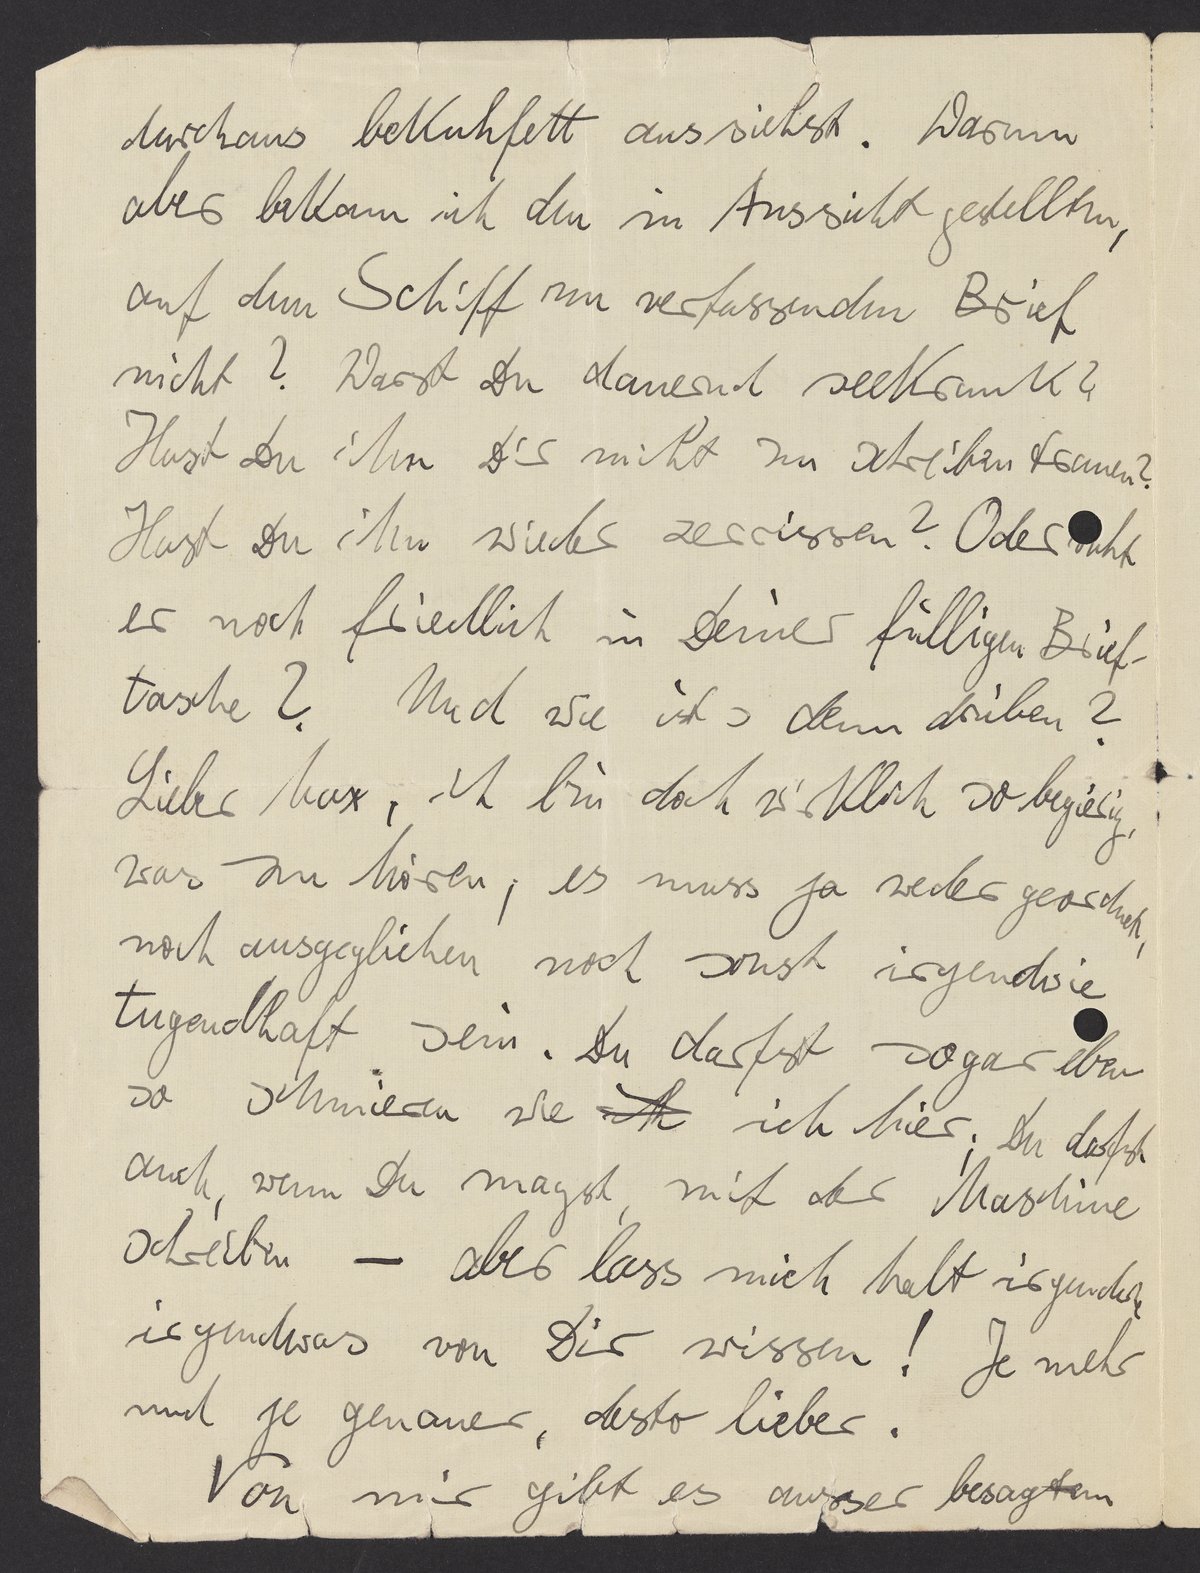 durchaus bekuhfett aussiehst. Warum
aber bekam ich den in Aussicht gestellten,
auf dem Schiff zu verfassenden Brief
nicht? Warst Du dauernd seekrank?
Hast Du ihn Dir nicht zu schreiben trauen?
Hast Du ihn wieder zerrissen? Oder ruht
er noch friedlich in Deiner fülligen Brief-
tasche? Und wie ist s denn drüben?
Lieber Max, ich bin doch wirklich so begierig,
was zu hören; es muss ja weder geordnet,
noch ausgeglichen noch sonst irgendwie
tugendhaft sein. Du darfst sogar eben
so schmieren wie ich ich hier; Du darfst
auch, wenn Du magst, mit der Maschine
schreiben — aber lass mich halt irgendwie
irgendwas von Dir wissen! Je mehr
und je genauer, desto lieber.
Von mir gibt es ausser besagtem